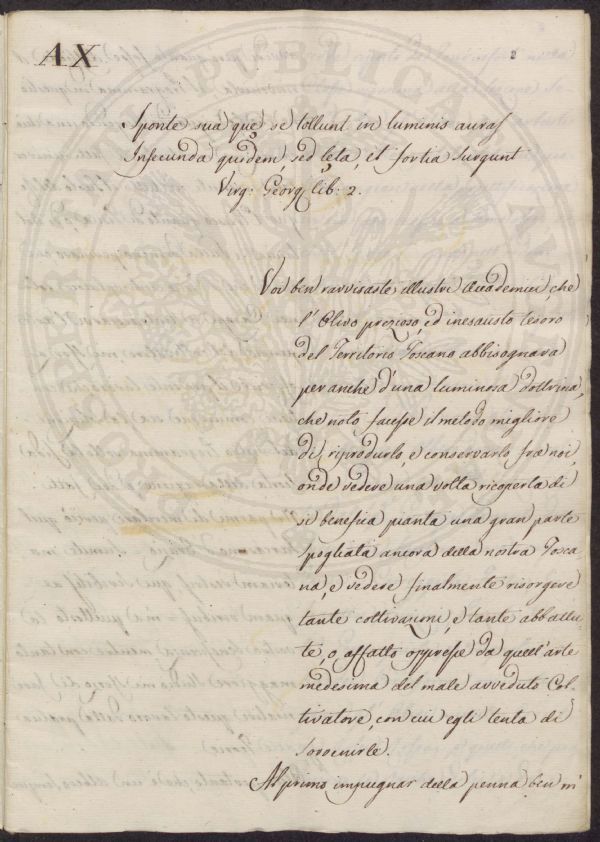 AX
2
Sponte sua que se tollunt in luminis auras
Infecunda quidem sed leta, et fortia surgunt
Virg: Georg: lib: 2.
Voi ben ravvisaste, illustri Accademici, che
l'Olivo prezioso, ed inesausto tesoro
del Territorio Toscano abbisognava
per anche d'una luminosa dottrina,
che noto facesse il metodo migliore
di riprodurlo, e conservarlo fra noi,
onde vedere una volta ricoperta di
sì benefica pianta una gran parte
spogliata ancora della nostra Tosca
na, e vedere finalmente risorgere
tante coltivazioni, e tante abbattu
te, o affatto oppresse da quell'arte
medesima del male avveduto Col
tivatore, con cui egli tenta di
sovvenirle.
Al primo impugnar della penna ben m'